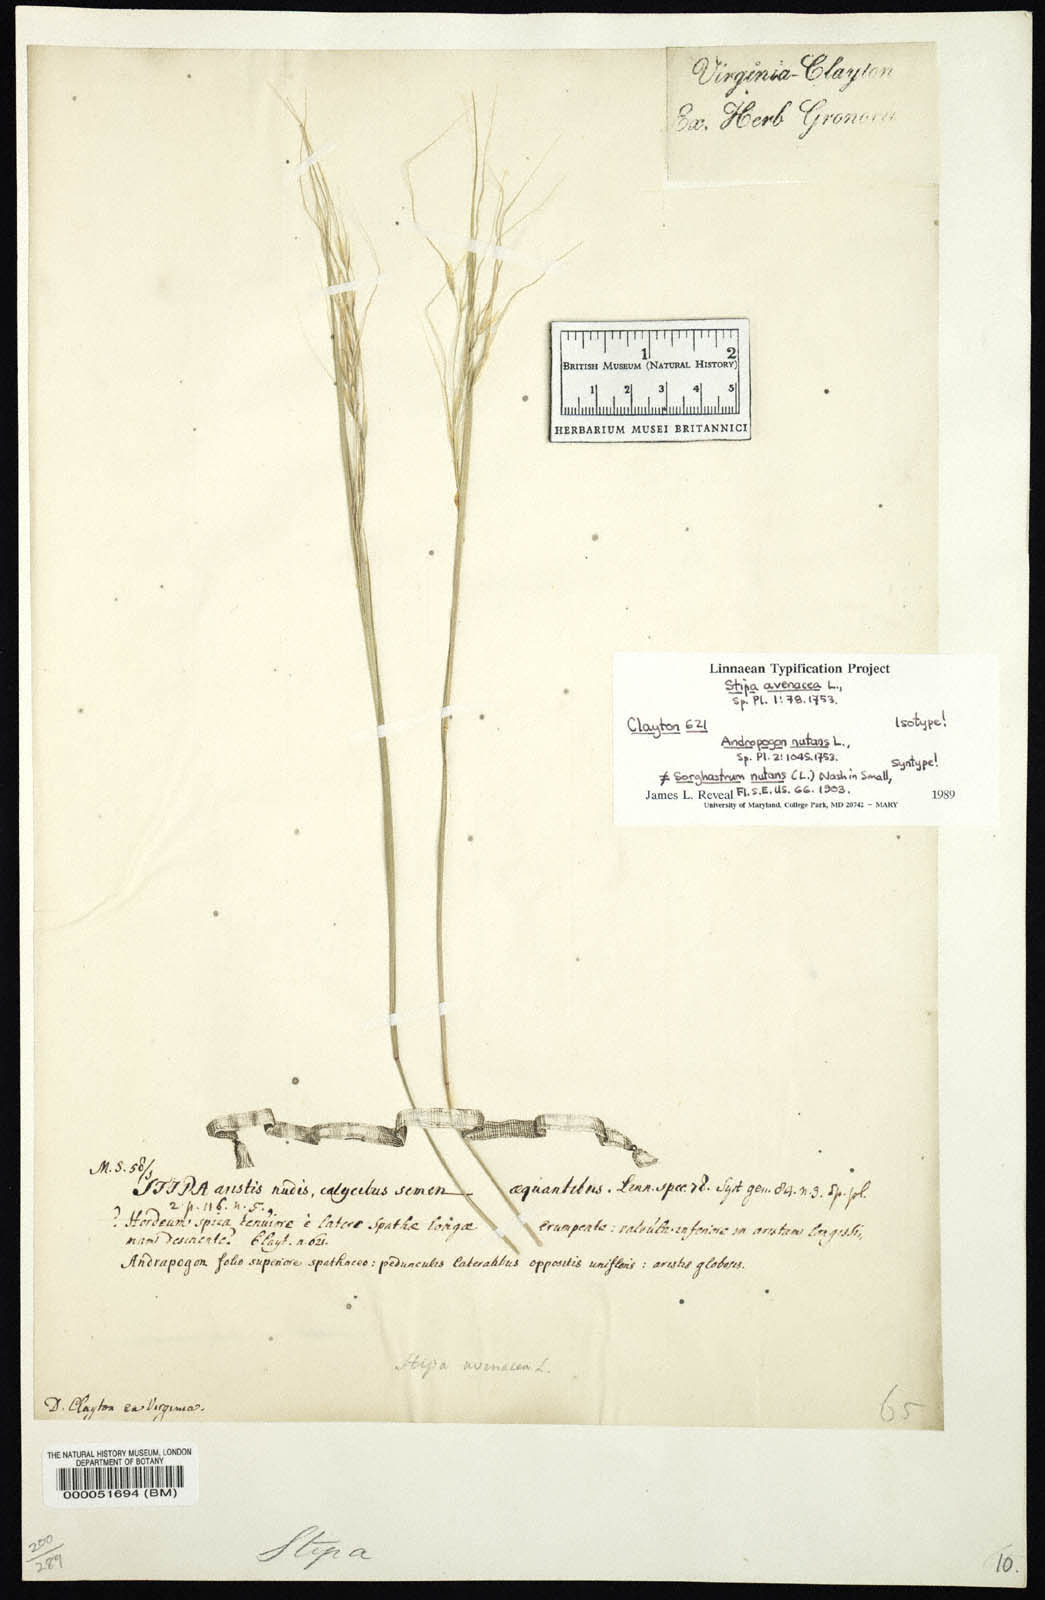 Virginia-Clayton
Ex. Herb Gronovii
1 2
BRITISH MUSEUM (NATURAL HISTORY)
1 2 3 4 5
HERBARIUM MUSEI BRITANNICI
Linnaean Typification Project
Stipa avenacea L.,
Sp. Pl. 1: 78. 1753.
Clayton 621 Isotype!
Andropogon nutans L.,
Sp. Pl. 2: 1045. 1753. Syntype!
≠ Sorghastrum nutans (L.) Nash in Small,
James L. Reveal Fl. S.E. US. 66. 1903. 1989
University of Maryland, College Park, MD 20742 – MARY
M.S. 58/3
STIPA aristis nudis, calycibus semen æquantibus. Linn. spec. 78. Syst gen. 84. n. 3. Sp. pl.
2 p. 116. n. 5.
? Hordeum spica tenuiore è latere spathæ longæ erumpente: valvula inferiore in aristam longissi,
mam desinente? Clayt. n. 621.
Andrapogon folio superiore spathaceo: pedunculis lateralibus oppositis unifloris: aristis globosis.
Stipa avenacea L.
D. Clayton ex Virginia.
65
THE NATURAL HISTORY MUSEUM, LONDON
DEPARTMENT OF BOTANY
000051694 (BM)
200/289
Stipa
10.